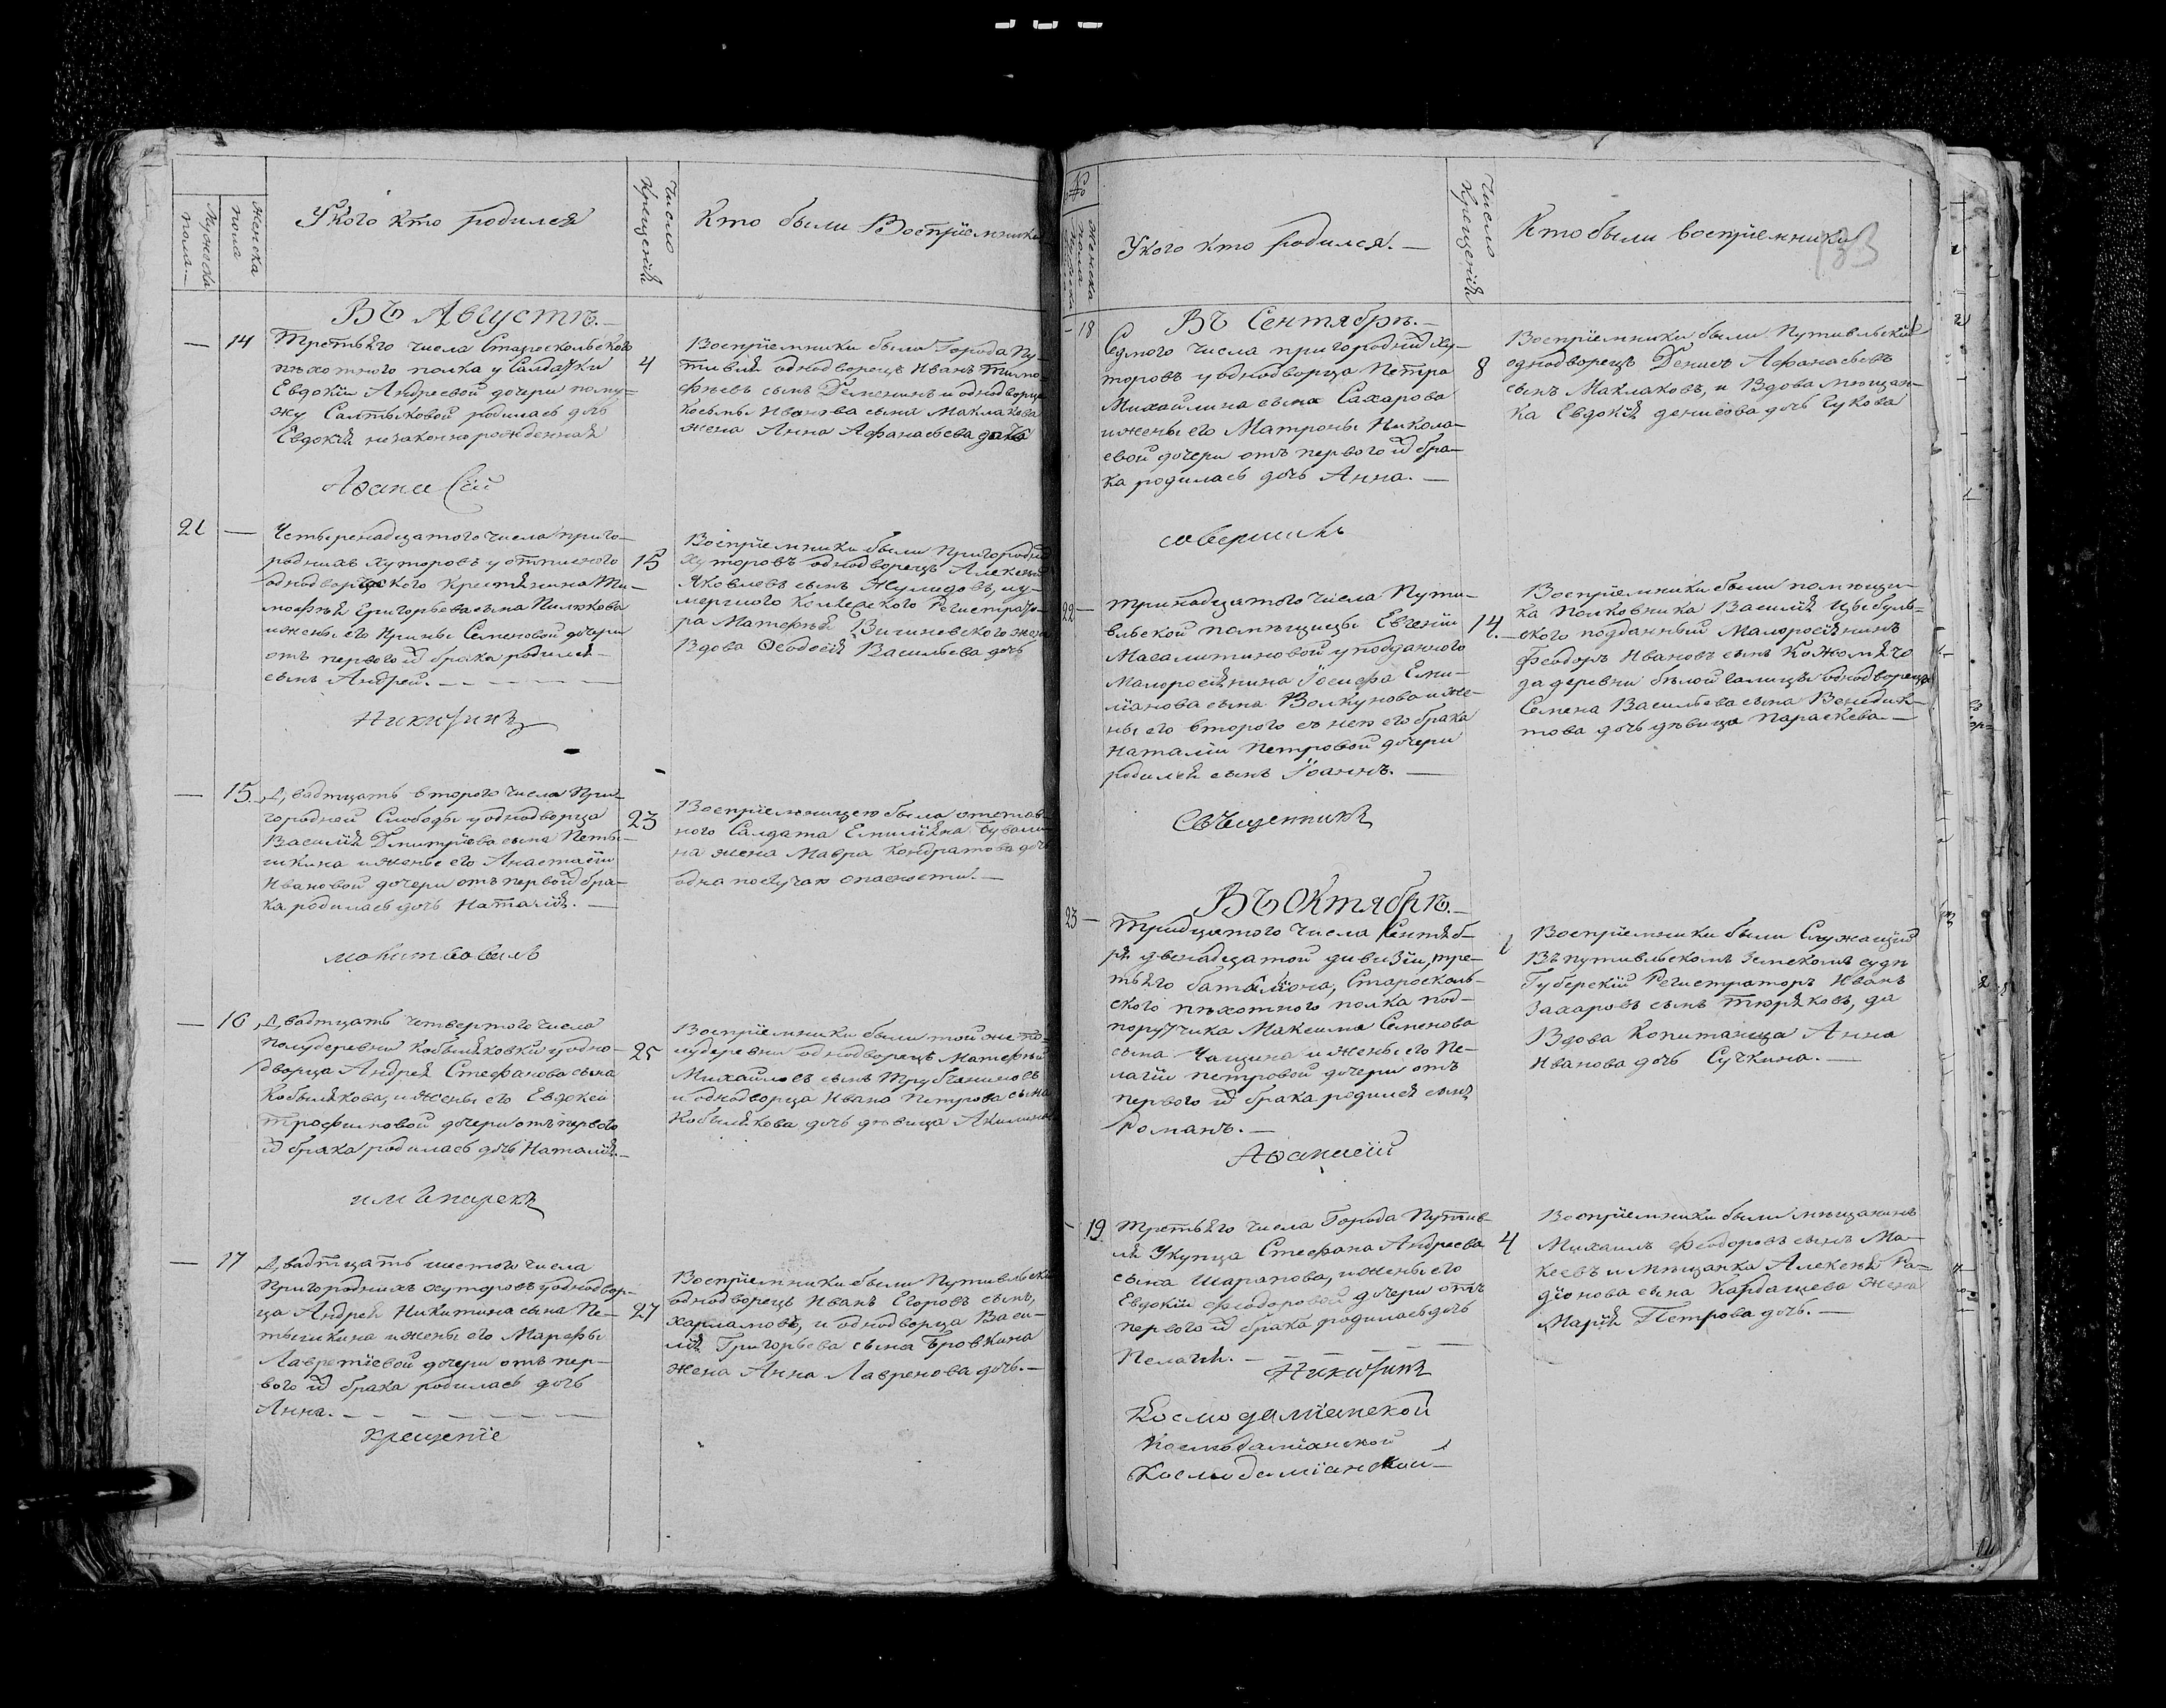 Мужеска пола.—
Женска пола
У кого кто родился
Число Крещенїй
Кто были Воспрїемники
Въ Августѣ.—
— 14
Третьяго числа Староскольского
пѣхотного полка у Салдатки
Евдокїи Андреевой дочери пому=
жу Салтыковой родилась дочь
Евдокїя незаконнорожденная
4
Воспрїемники были Города Пу-
тивля однодворецъ Иванъ Тимо-
фѣевъ сынъ Деменинъ и однодворца
Косьмы Иванова сына Маклакова
жена Анна Афанасьева дочь
Аѳанасїй
21 —
Четыренадцатого числа приго-
родныхъ хуторовъ у отписного
однодворческого Крестьянина Ти-
мофѣя Григорьева сына Пилюкова
и жены его Ирины Семеновой дочери
отъ первого ихъ брака родился
сынъ Андрей.—
15
Воспрїемники были Пригородныхъ
хуторовъ однодворецъ Алексѣй
Яковлевъ сынъ Жулидовъ, и у-
мершого Колежского Регистрато-
ра Матфѣя Вишневского жена
Вдова Ѳеодосїя Васильева дочь
Никифинъ
— 15.
Двадцать второго числа При-
городней Слободы у однодворца
Василїя Дмитрїева сына Петы-
шкина и жены его Анастасїи
Ивановой дочери отъ первого ихъ бра-
ка родилась дочь Наталїя.—
23
Воспрїемницею была отстав-
ного Салдата Емилїяна Чували-
на жена Мавра Кондратова дочь
одна по случаю опасности.—
молитвовалъ
— 16
Двадцать четвертого числа
полудеревни Кобыляковки у одно-
дворца Андрея Стефанова сына
Кобылякова, и жены его Евдокеи
Трофимовой дочери отъ первого
ихъ брака родилась дочь Наталїя.—
25
Воспрїемники были той же по-
лудеревни однодворецъ Матфѣй
Михайловъ сынъ Трубчаниновъ
и однодворца Ивана Петрова сына
Кобылякова дочь дѣвица Акилина
имя нарекъ
— 17
Двадцать шестого числа
Пригородныхъ хуторовъ у однодвор-
ца Андрея Никитина сына Пе-
тышкина и жены его Марфы
Лаврентїевой дочери отъ пер-
вого ихъ брака родилась дочь
Анна.—
27
Воспрїемники были Путивльски
однодворецъ Иванъ Егоровъ сынъ
Харламовъ, и однодворца Васи-
лїя Григорьева сына Бровкина
жена Анна Лавренова дочь.—
крещенїе
№
Женска пола
У кого кто родился.—
Число Крещенїй
Кто были воспрїемники
133
Въ Сентябрѣ.—
— 18
Седмого числа пригородныхъ Ху-
торовъ у однодворца Петра
Михайлина сына Сахарова
и жены его Матроны Никола-
евой дочери отъ первого ихъ бра-
ка родилась дочь Анна.—
8
Воспрїемники были Путивльскїй
однодворецъ Денисъ Афанасьевъ
сынъ Маклаковъ, и Вдова мѣщан-
ка Евдокїя Денисова дочь Гукова
совершилъ
22 —
тринадцатого числа Пути-
вльской помѣщицы Евгенїи
Масалитиновой у подданного
Малоросїянина Іосифа Еми-
лїанова сына Волкунова и же-
ны его второго съ нею его брака
Наталїи Петровой дочери
родился сынъ Іоаннъ.—
14.
Воспрїемники были помѣщи-
ка Полковника Василїя Цыбуль-
ского подданный Малоросїянинъ
Феодоръ Ивановъ сынъ Кожомячо
да деревни Бѣлой Галицы однодворца
Семена Васильева сына Венедик-
това дочь дѣвица Параскева.—
Священникъ
Въ Октябрѣ.—
23 —
Тридцатого числа Сентяб-
ря двенадцатой дивизїи, тре-
тьяго баталїона, Староосколь-
ского пѣхотного полка под-
порутчика Максима Семенова
сына Чащина и жены его Пе-
лагїи Петровой дочери отъ
первого ихъ брака родился сынъ
Романъ.—
1
Воспрїемники были Служащїй
въ путивльскомъ земскомъ судѣ
Губерскїй Регистраторъ Иванъ
Захаровъ сынъ Тюряковъ, да
Вдова Копитанща Анна
Иванова дочь Сучкина.—
Аѳанасїй
— 19
третьяго числа Города Путив-
ля У купца Стефана Андреева
сына Шарапова, и жены его
Евдокїи Феодоровой дочери отъ
первого ихъ брака родилась дочь
Пелагїя.—
4
Воспрїемники были мѣщанинъ
Михаилъ Феодоровъ сынъ Ма-
кеевъ и мѣщанка Алексѣя Ра-
дїонова сына Кардашева жена
Марїя Петрова дочь.—
Никифинъ
Космодамїанской
Космодамїанской
Космодамїанской—